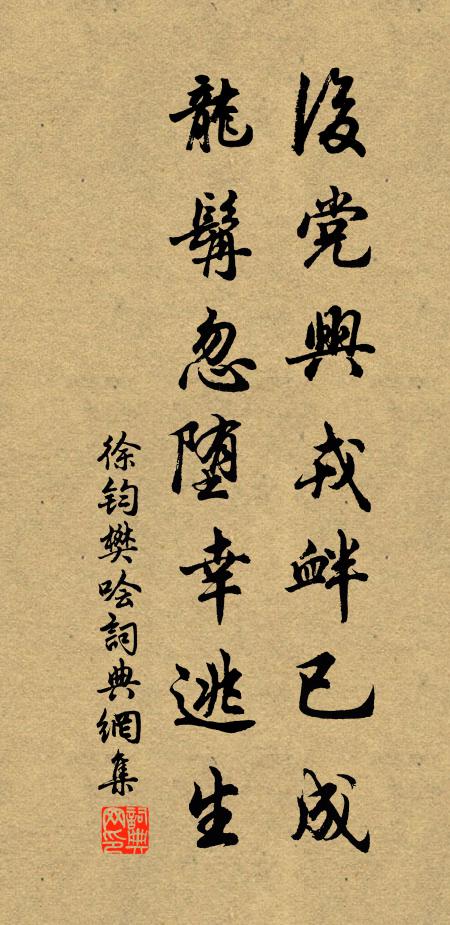 後党興戎衅已成
龍髯忽堕幸逃生
徐钧樊哙詞典網集
詞典网印